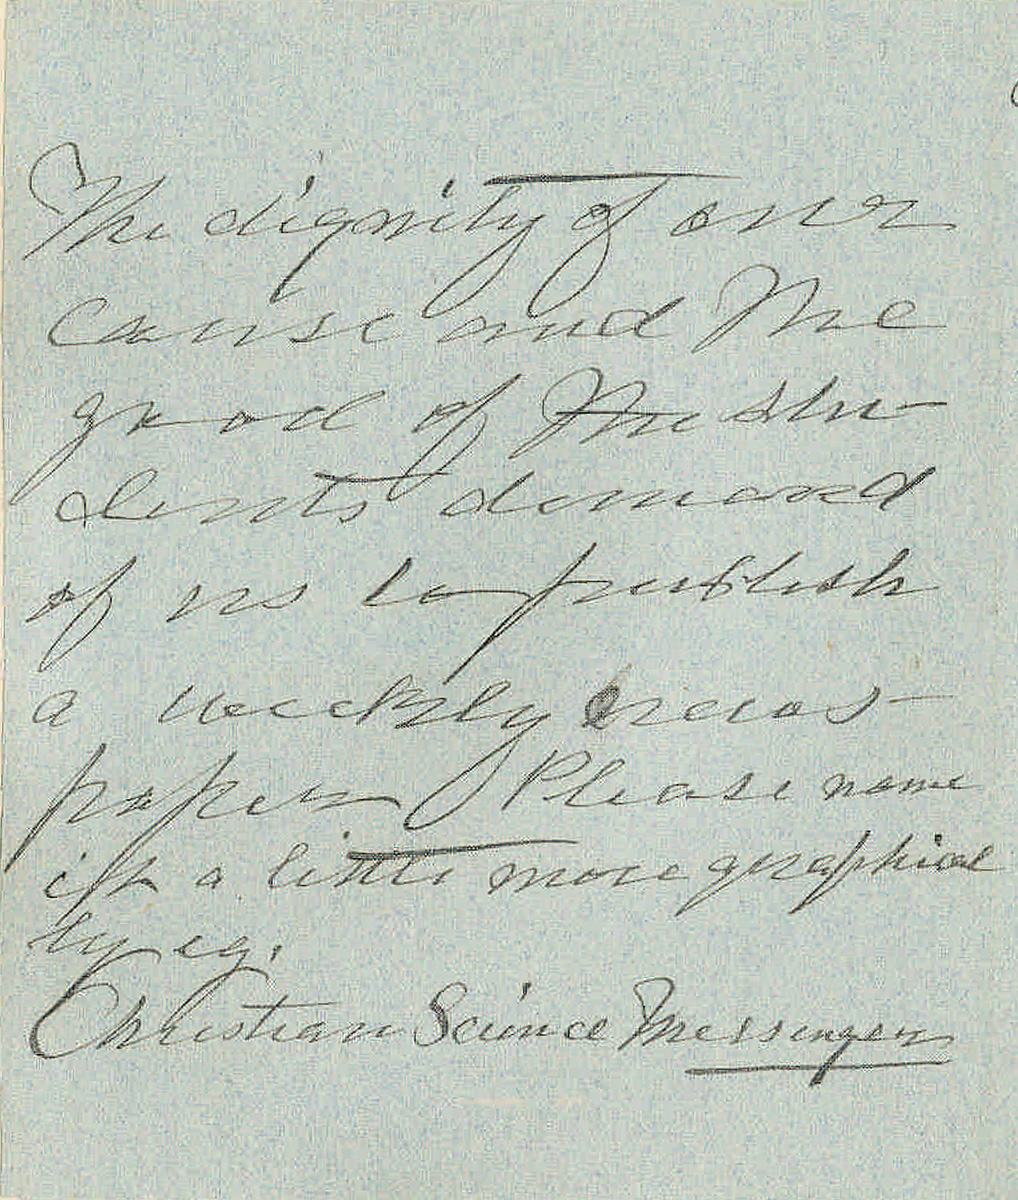 The dignity of our
cause and the
good of the stu-
dents demand
of us to publish
a weekly news-
paper Please name
it a little more graphical
ly eg.
Christian Science Messenger